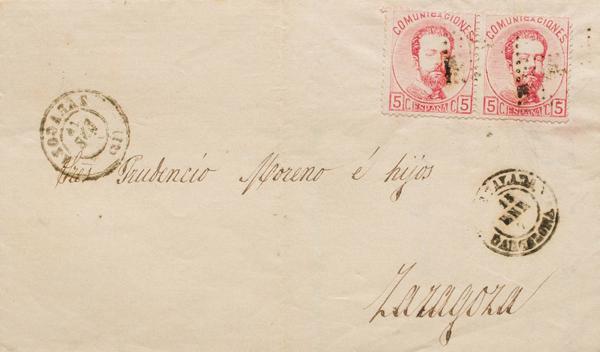 COMUNICACIONES COMUNICACIONES
5 C ESPAÑA C 5 5 C ESPAÑA C 5
ZARAGOZA
Sres Prudencio Moreno é hijos
13
ENE
BARCELONA
Zaragoza